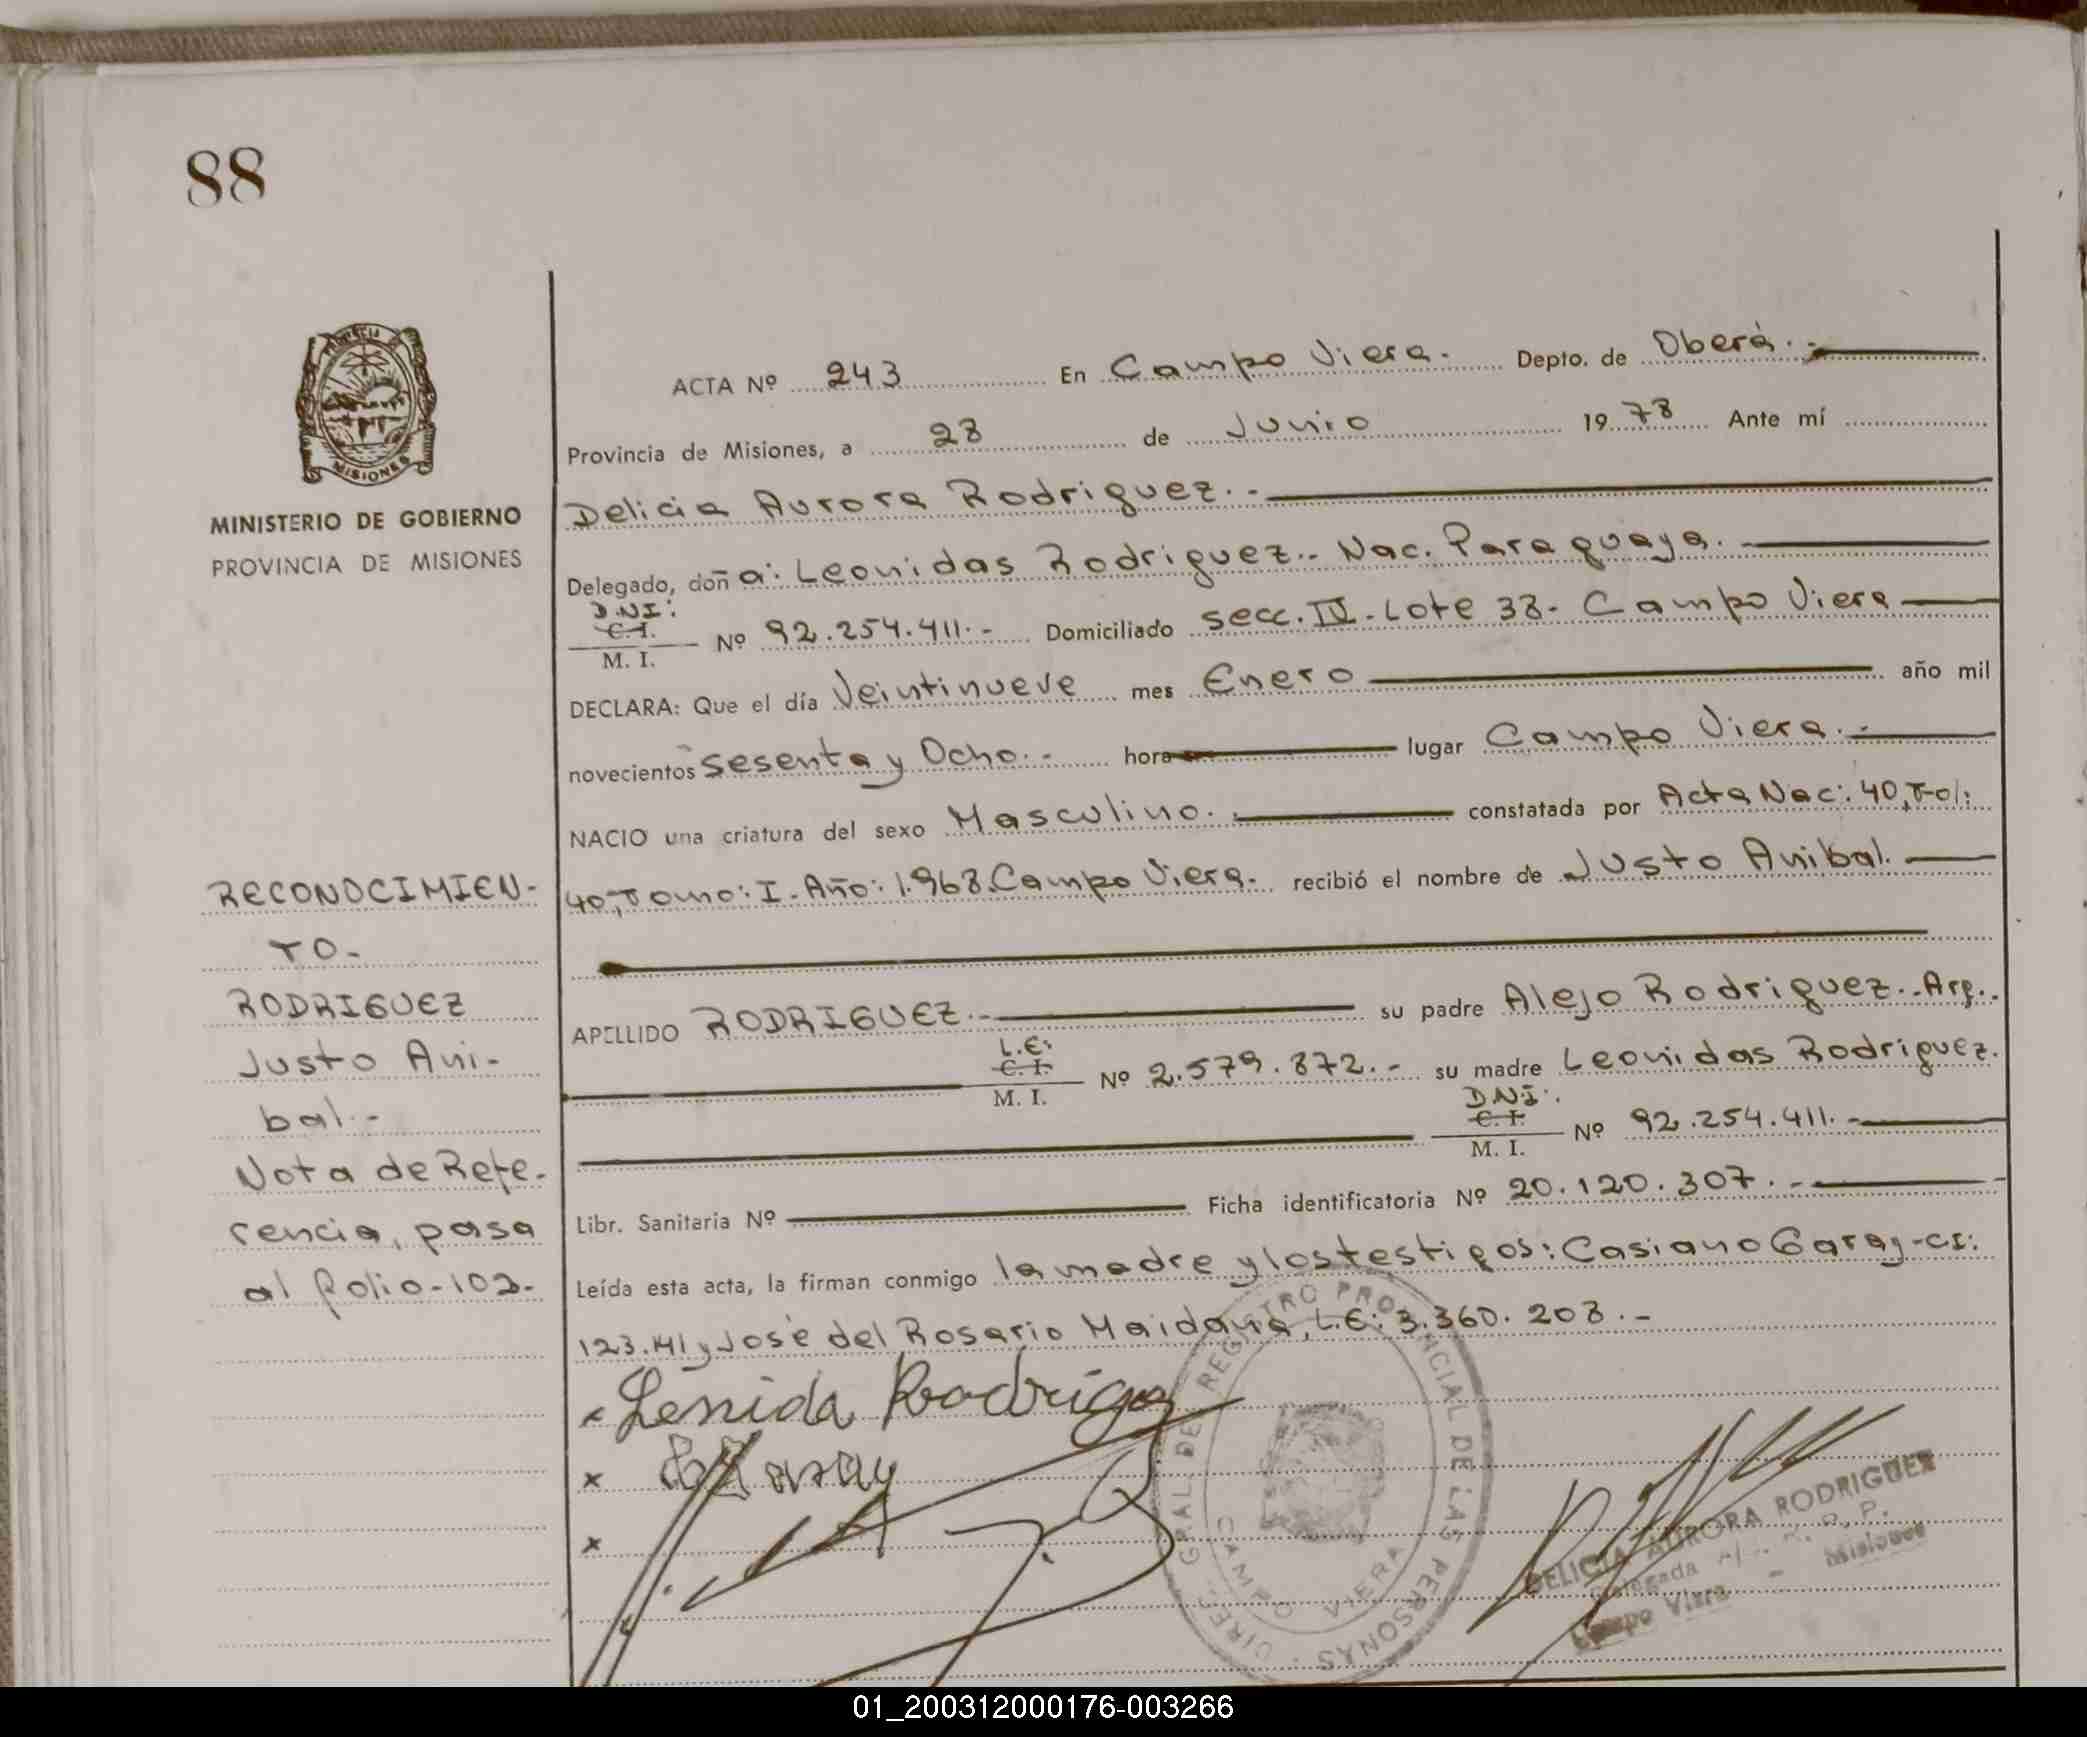 88
PROVINCIA
MISIONES
MINISTERIO DE GOBIERNO
PROVINCIA DE MISIONES
ACTA Nº 243 En Campo Viera.- Depto. de Oberá.-
Provincia de Misiones, a 28 de Junio 1978 Ante mí
Delicia Aurora Rodriguez.-
Delegado, doña: Leonidas Rodriguez.- Nac. Paraguaya.
D.N.I:
C.I.
M. I.
Nº 92.254.411.- Domiciliado secc. IV. Lote 38- Campo Viera
DECLARA: Que el día Veintinueve mes Enero año mil
novecientos Sesenta y Ocho.- hora lugar Campo Viera.-
NACIO una criatura del sexo Masculino. constatada por Acta Nac: 40, Fol:
40, Tomo: I. Año: 1.968. Campo Viera. recibió el nombre de Justo Anibal.
APELLIDO RODRIGUEZ.- su padre Alejo Rodriguez.-Arg..
L.E:
C. I.
M. I.
Nº 2.579.872.- su madre Leonidas Rodriguez.
D.N.I:.
C. I.
M. I.
Nº 92.254.411.-
Libr. Sanitaria Nº Ficha identificatoria Nº 20.120.307.-
Leída esta acta, la firman conmigo la madre y los testigos: Casiano Garay-CI:
123.141 y José del Rosario Maidana, L.E: 3.360.208.-
RECONOCIMIEN-
TO-
RODRIGUEZ
Justo Ani-
bal.-
Nota de Refe-
rencia, pasa
al folio-102-
x Lenida Rodrigez
x
x
DIREC. GRAL. DEL REGISTRO PROVINCIAL DE LAS PERSONAS
CAMPO VIERA
DELICIA AURORA RODRIGUEZ
Delegada R. P.
Campo Viera - Misiones
01_200312000176-003266